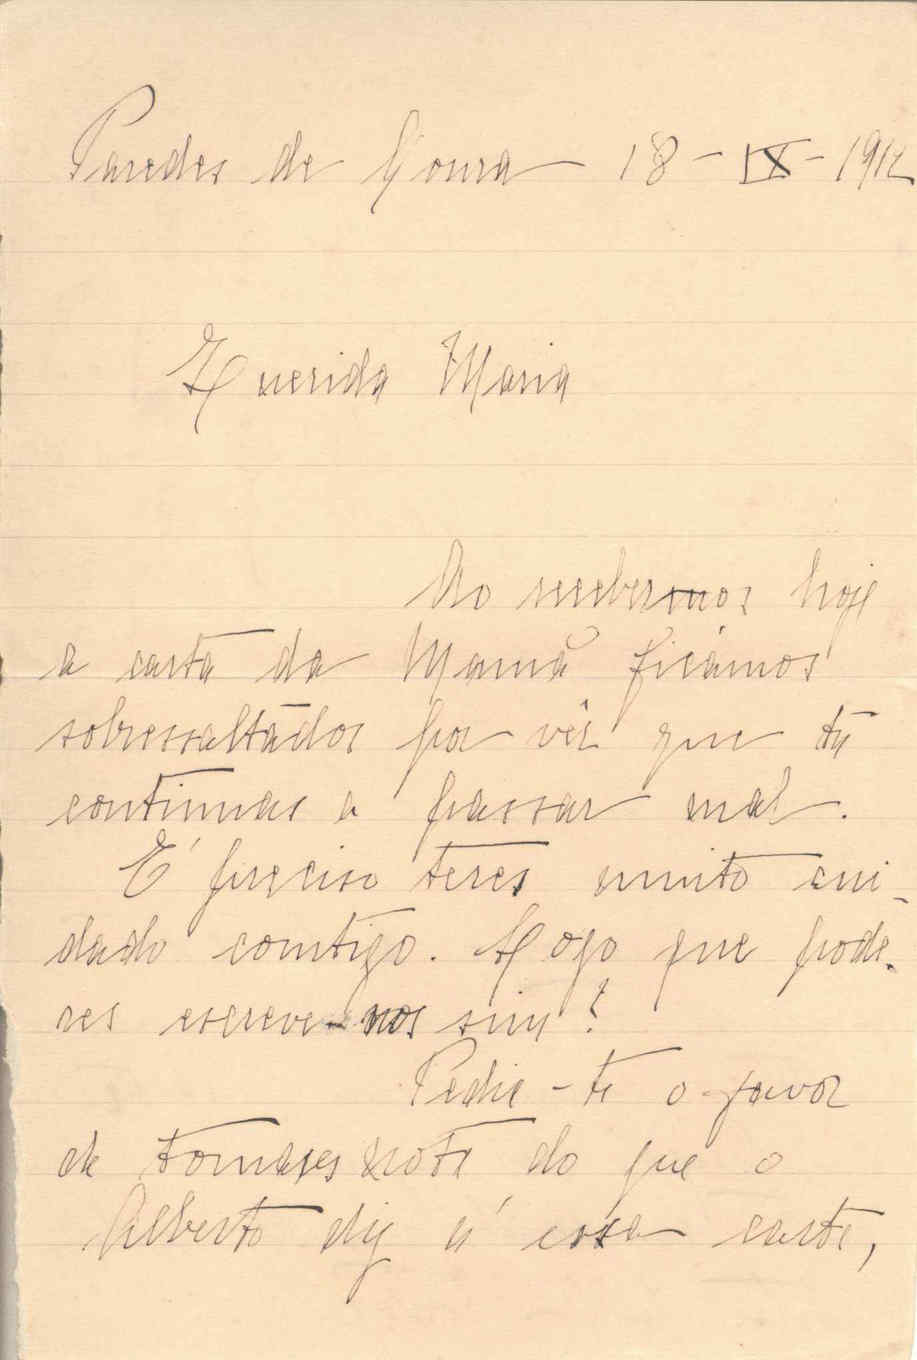 Paredes de Coura 18-IX-1912
Querida Maria
Ao recebermos hoje
a carta da Mamã ficámos
sobressaltados por vêr que tu
continuas a passar mal.
É preciso teres muito cui-
dado comtigo. Logo que pode-
res escreve-nos sim?
Pedia-te o favor
de tomares nota do que o
Alberto diz n'essa carta,